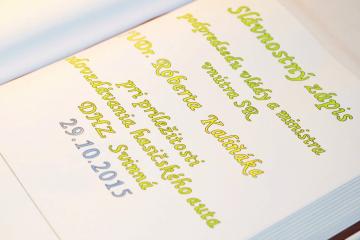 Slávnostný zápis
podpredsedu vlády a ministra
vnútra SR
JUDr. Róberta Kaliňáka
pri príležitosti
odovzdávania hasičského auta
DHZ Svinná
29.10.2015